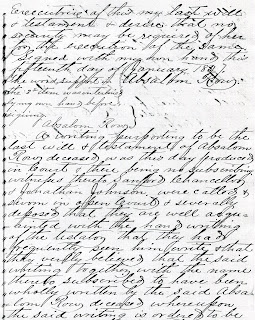 Executrix of this my last will
& testament & desire that no
security may be required of her
for the execution of the same
Signed with my own hand this
second day of January 18
the word support in Absalom Row
the 3d item was interlined
by my own hand before
signing
Absalom Row
A writing purporting to be the
last will & testament of Absalom
Row deceased was this day produced
in Court & there being no subscribing
witnesses thereto Sanford Chancellor
& Jonathan Johnson were called &
sworn in open Court & severally
deposed that they are well acqu-
ainted with the hand writing
of the testator that they had
frequently seen him write & that
they verily believed that the said
writing together with the name
thereto subscribed to have been
wholly written by the said Absa-
lom Row deceased whereupon
the said writing is ordered to be